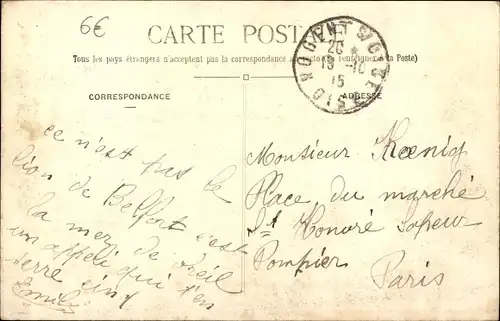 6€
CARTE POST
Tous les pays étrangers n'acceptent pas la correspondance au recto (se renseigner à la Poste)
NOGENT S/OISE
20
13 -10
15
OISE
CORRESPONDANCE
ADRESSE
ce n'est pas le
lion de Belfort c'est
la mer de
un appel qui t'en
serre cinq
Emile
Monsieur Kœnig
Place du marché
St Honoré Sapeur
Pompier
Paris